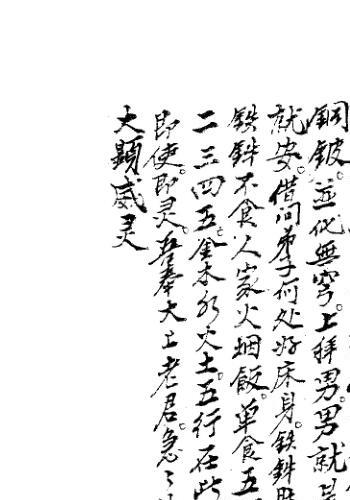 鋼鈹。並化無穹。上拜男。男就是
就安。借问弟子何处好床身。鉄鉡
鉄鉡不食人家火烟飯。单食五
二三四五。金木水火土。五行在此
即使。即灵。吾奉大上老君。急
大顕威灵